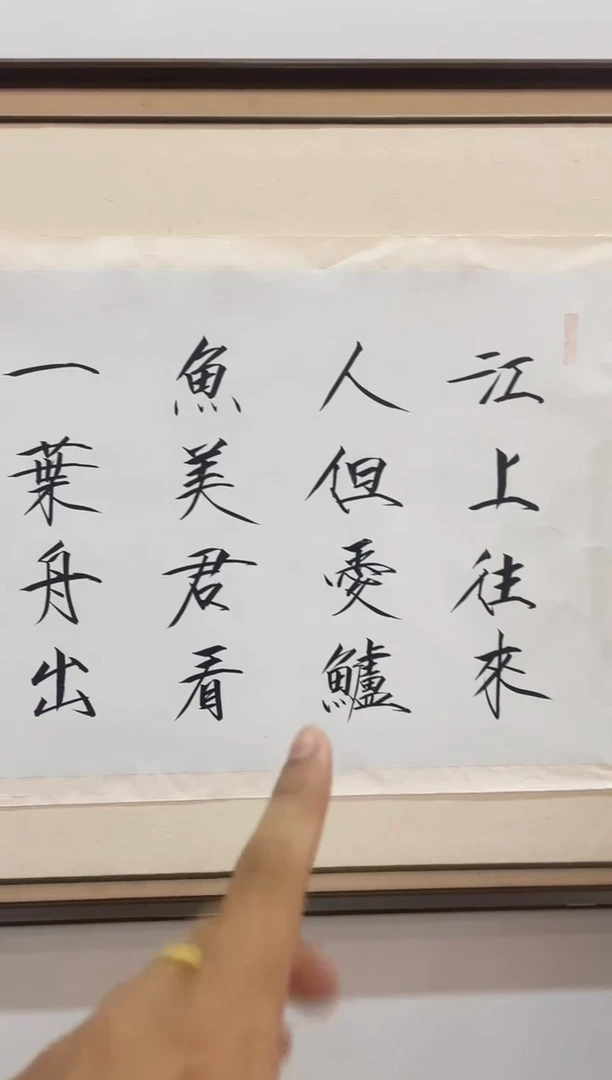 江上往來
人但愛鱸
魚美君看
一葉舟出